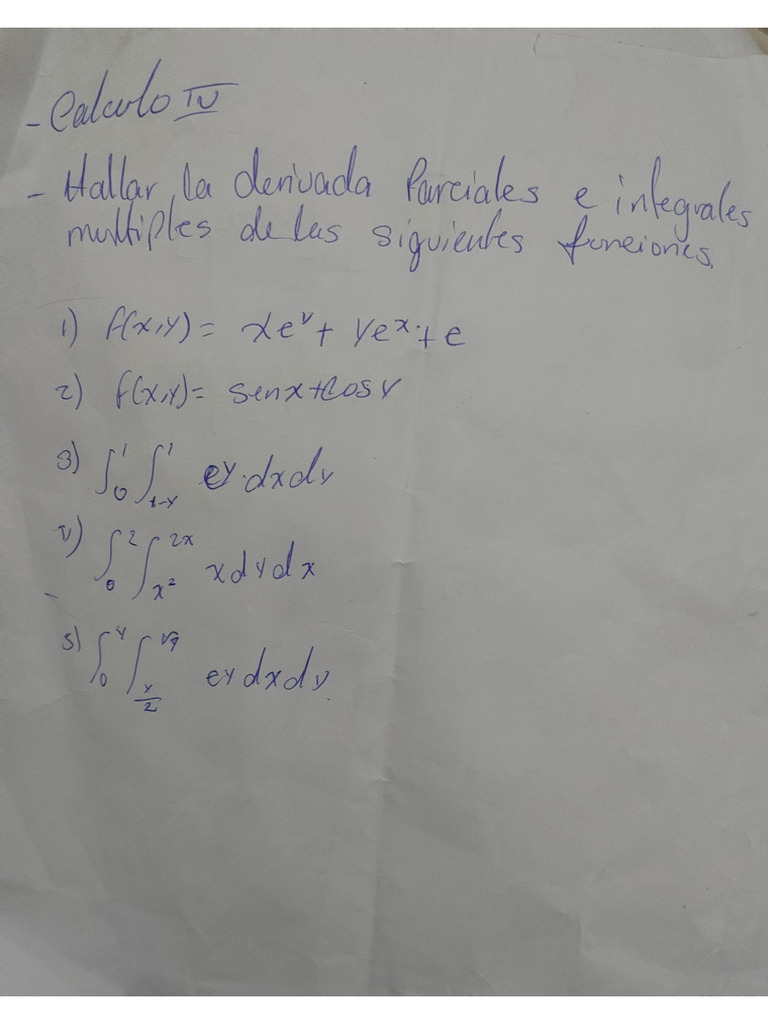 - Calculo IV
- Hallar la derivada Parciales e integrales
multiples de las siguientes funciones.
1) f(x,y) = xe^y + ye^x + e
2) f(x,y) = senx + Cosy
3) ∫_0^1 ∫_{1-y}^1 ey dxdy
4) ∫_0^2 ∫_{x^2}^{2x} xdydx
5) ∫_0^4 ∫_{y/2}^{√y} ey dxdy